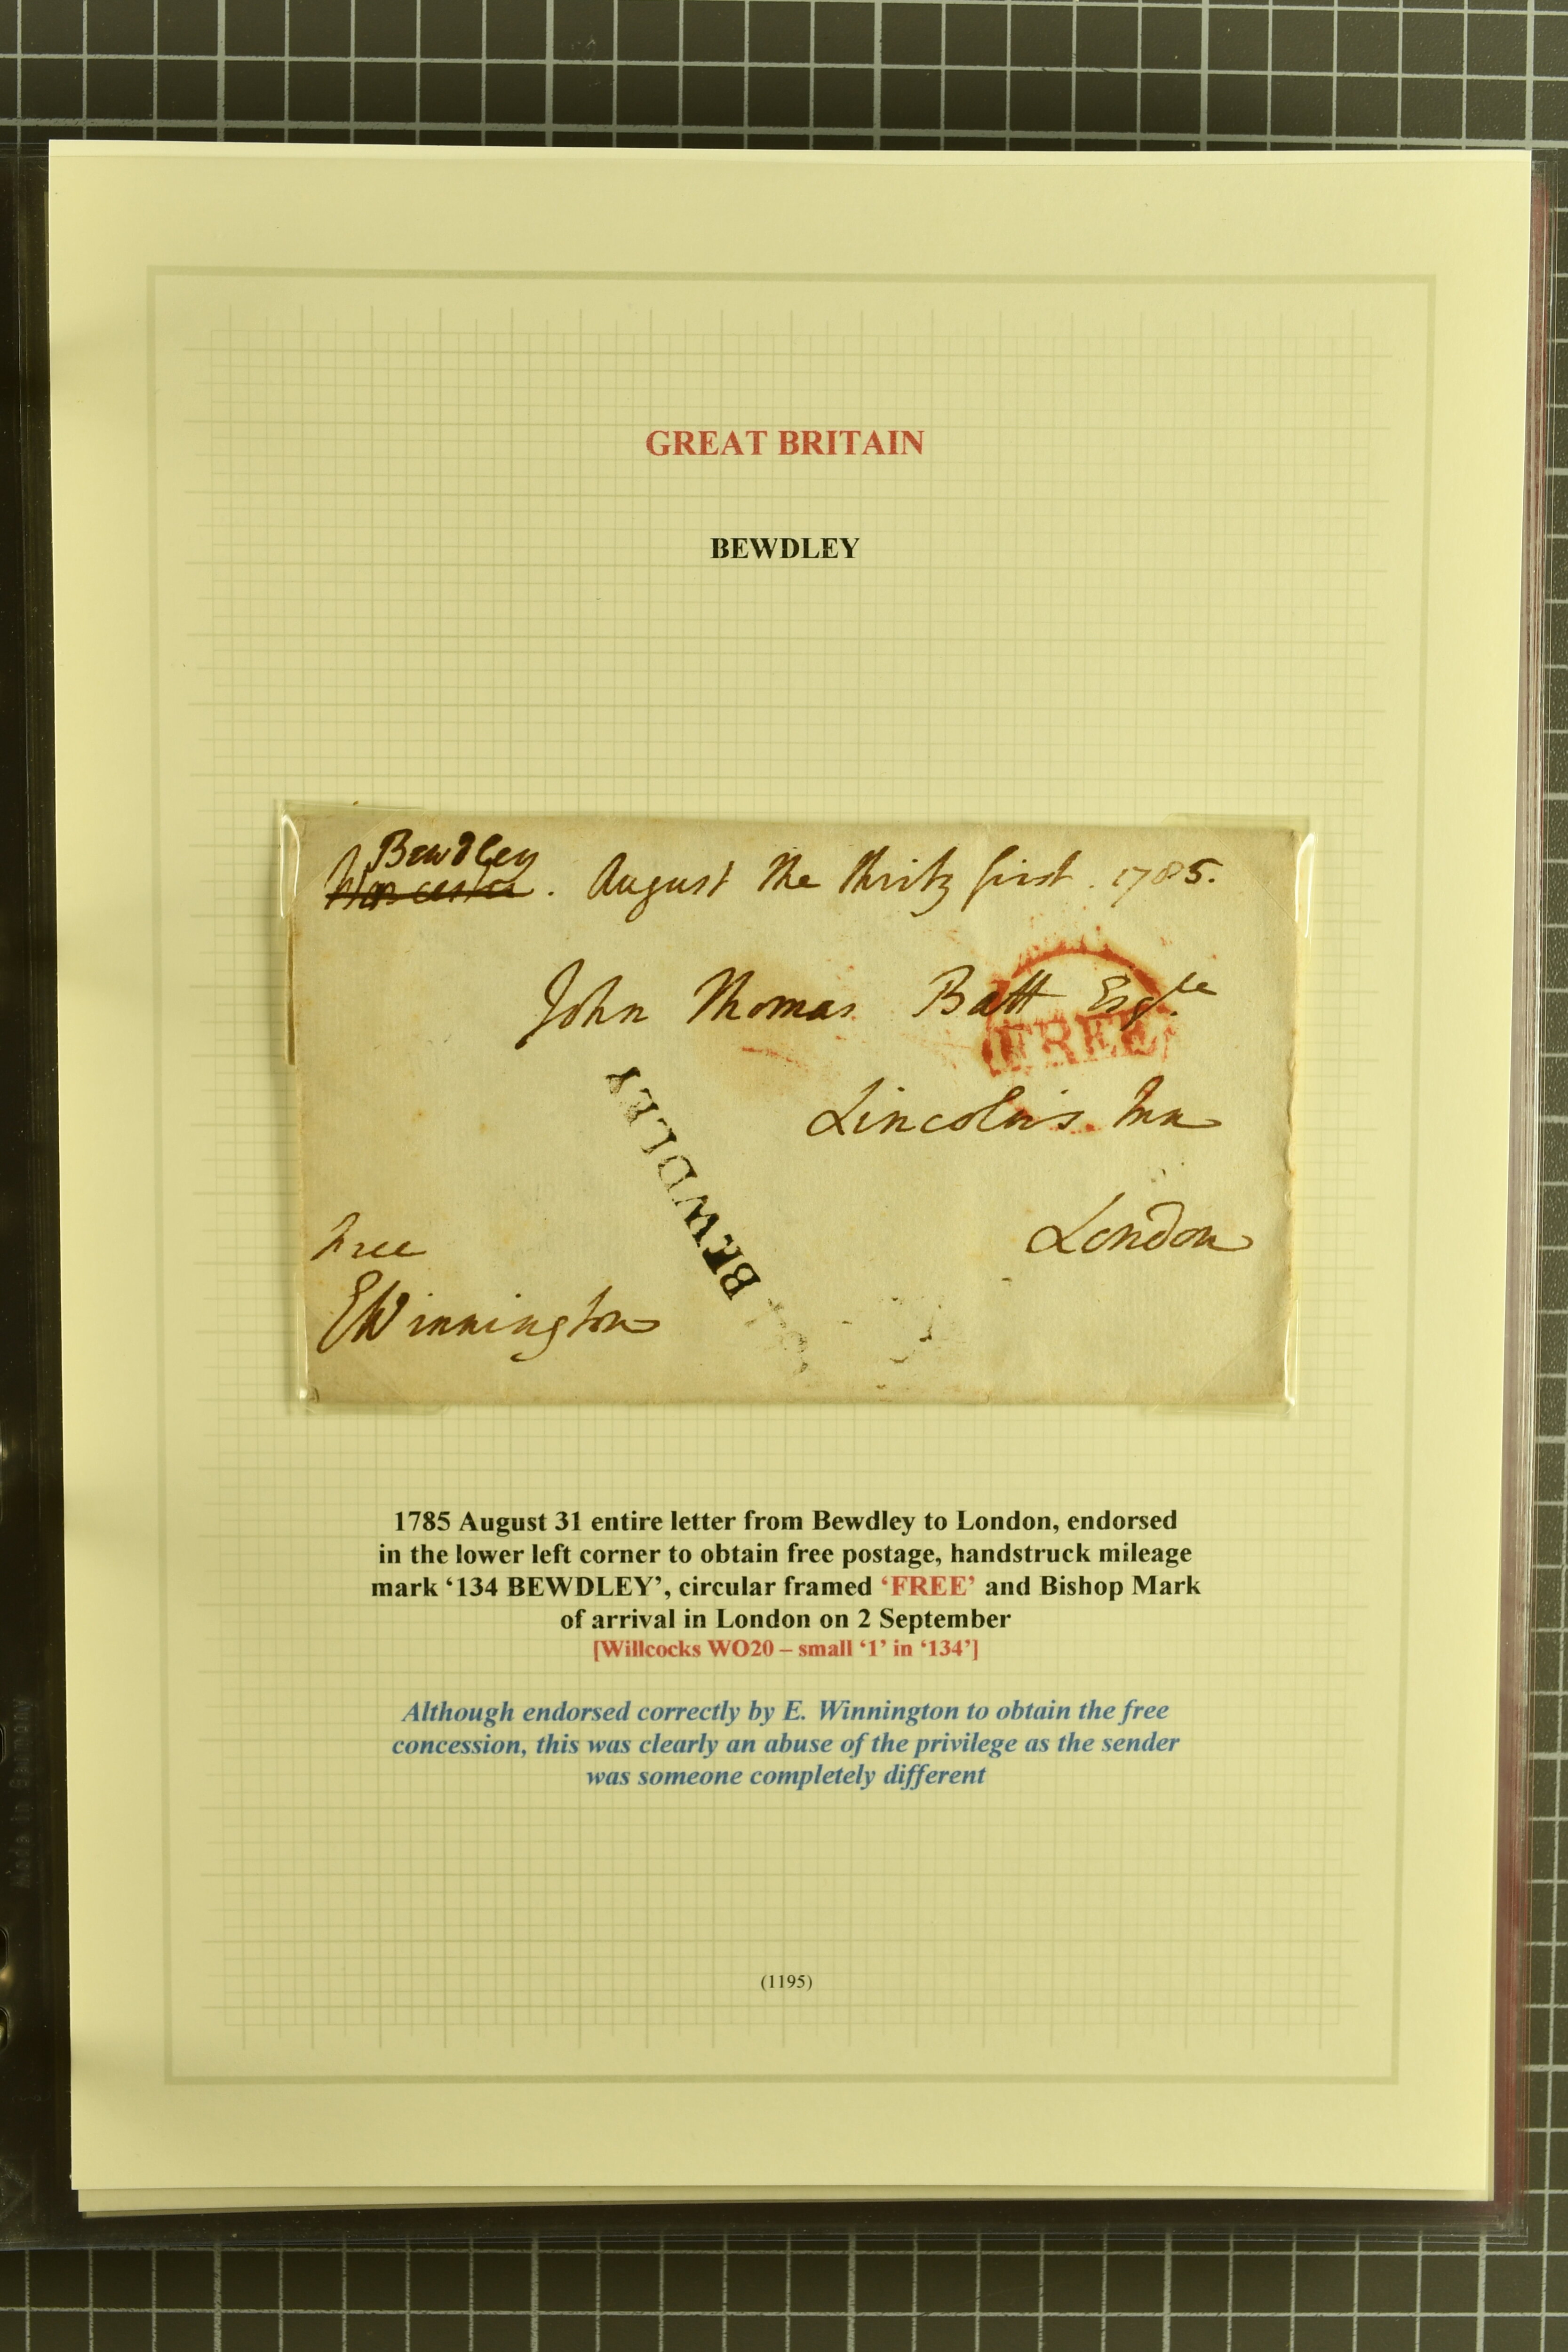 GREAT BRITAIN
BEWDLEY
Bewdley
Worcester. August the thirty first. 1785.
John Thomas Batt Esqre
FREE
Lincoln's Inn
BEWDLEY
London
Free
EWinnington
1785 August 31 entire letter from Bewdley to London, endorsed
in the lower left corner to obtain free postage, handstruck mileage
mark ‘134 BEWDLEY’, circular framed ‘FREE’ and Bishop Mark
of arrival in London on 2 September
[Willcocks WO20 – small ‘1’ in ‘134’]
Although endorsed correctly by E. Winnington to obtain the free
concession, this was clearly an abuse of the privilege as the sender
was someone completely different
(1195)
Made in Germany